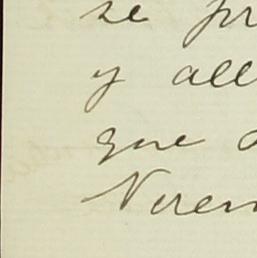 se pr
y all
que
Neren